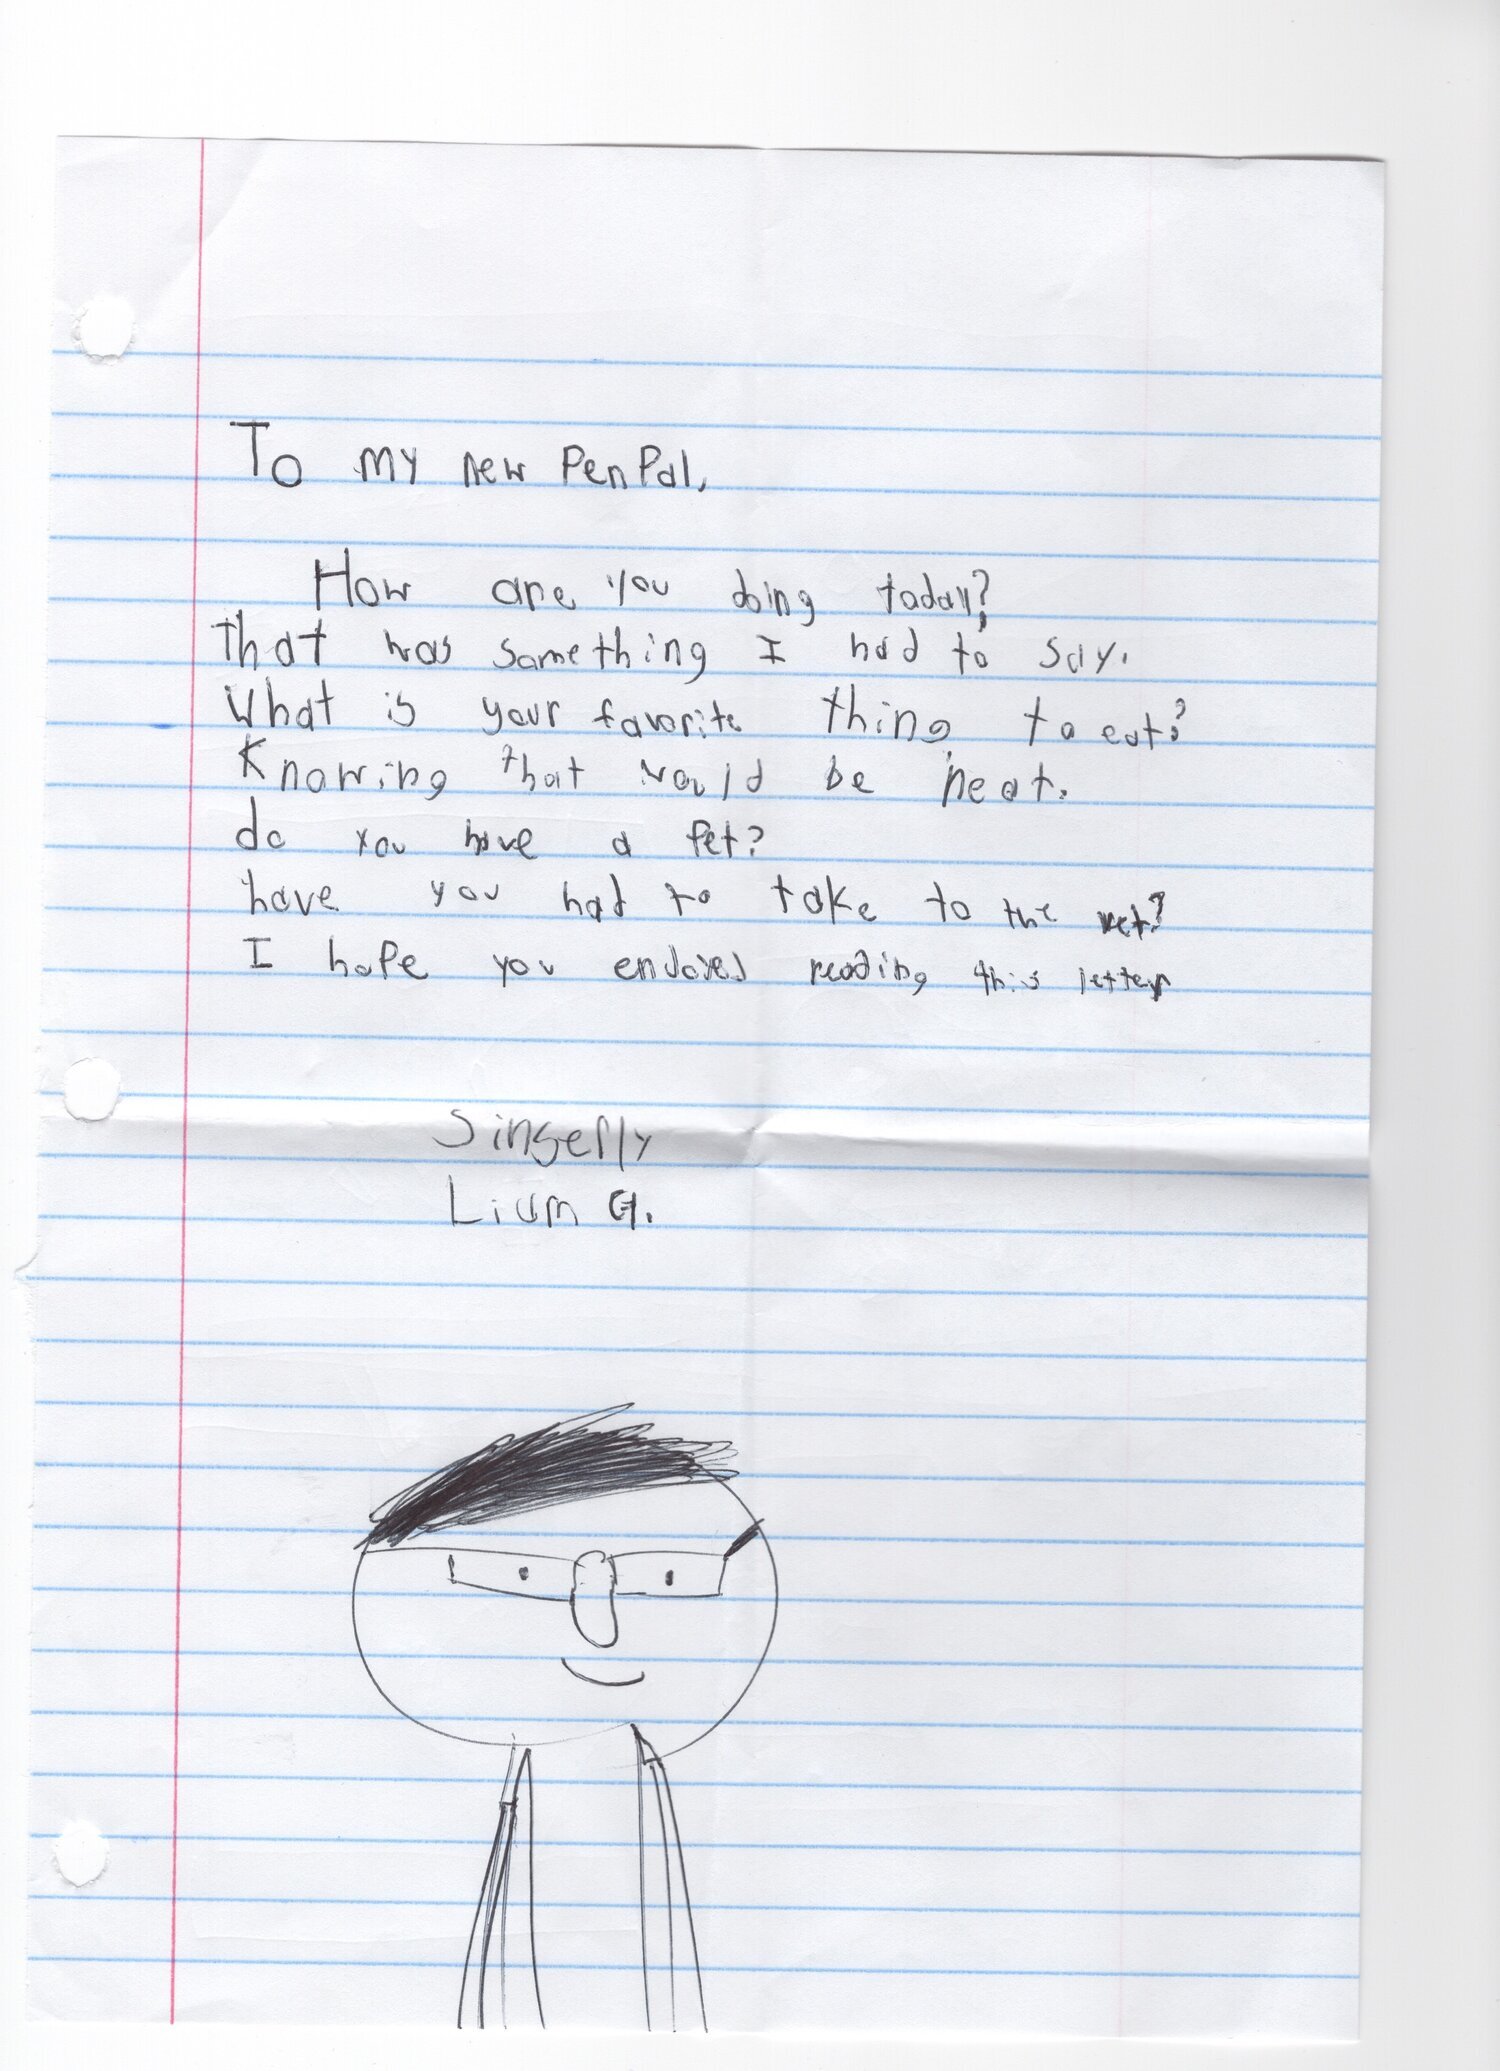 To my new PenPal,
How are you doing today?
That was something I had to say.
What is your favorite thing to eat?
Knowing that would be neat.
do you have a Pet?
have you had to take to the vet?
I hope you endoyed reading this letter
Singerly
Lium G.